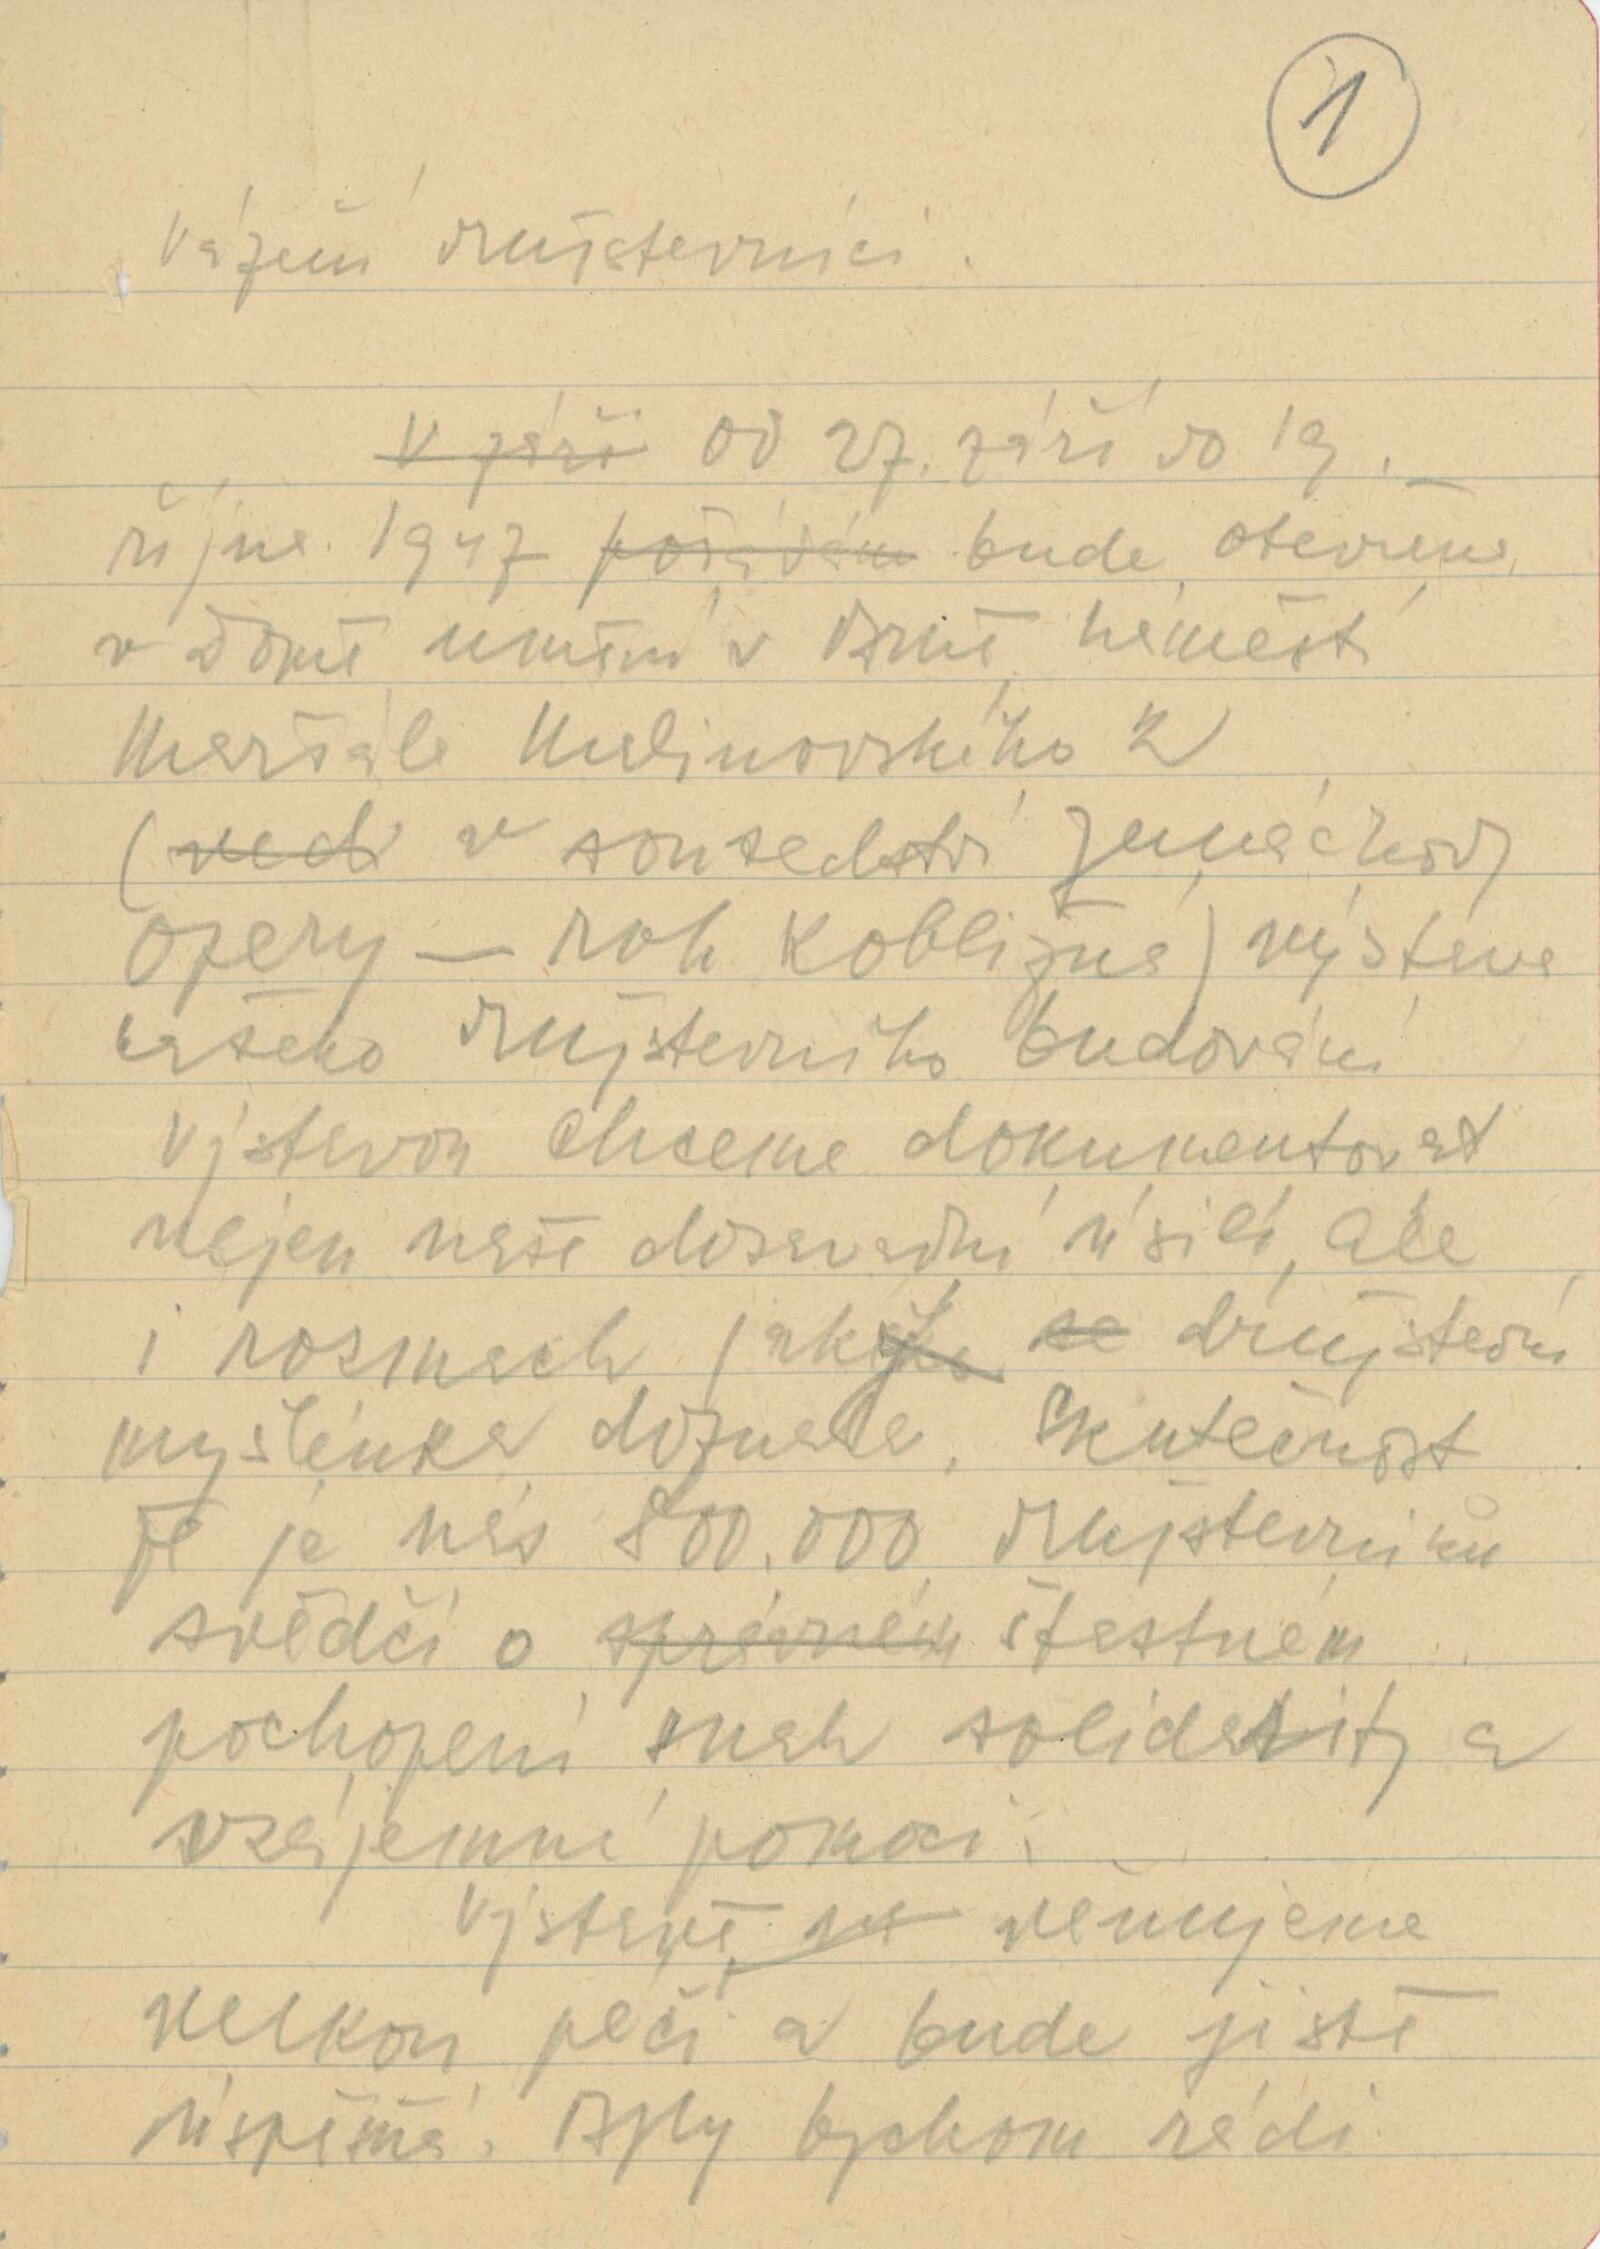 1
Vážení družstevníci.
V září od 27. září do 19.
října 1947 pořádám bude otevřena
v Domě umění v Brně náměstí
Maršála Malinovského 2
(vedl v sousedství Zemáčkovy
opery — roh Kobližné) výstava
našeho družstevního budování
Výstavou chceme dokumentovat
nejen naše dosavadní úsilí, ale
i rozmach, jakého se družstevní
myšlenka doznala. Skutečnost
že je nás 800.000 družstevníků
svědčí o správném šťastném
pochopení snah solidarity a
vzájemné pomoci.
Výstavě věnujeme
velkou péči a bude jistě
úspěšná. Byly bychom rádi